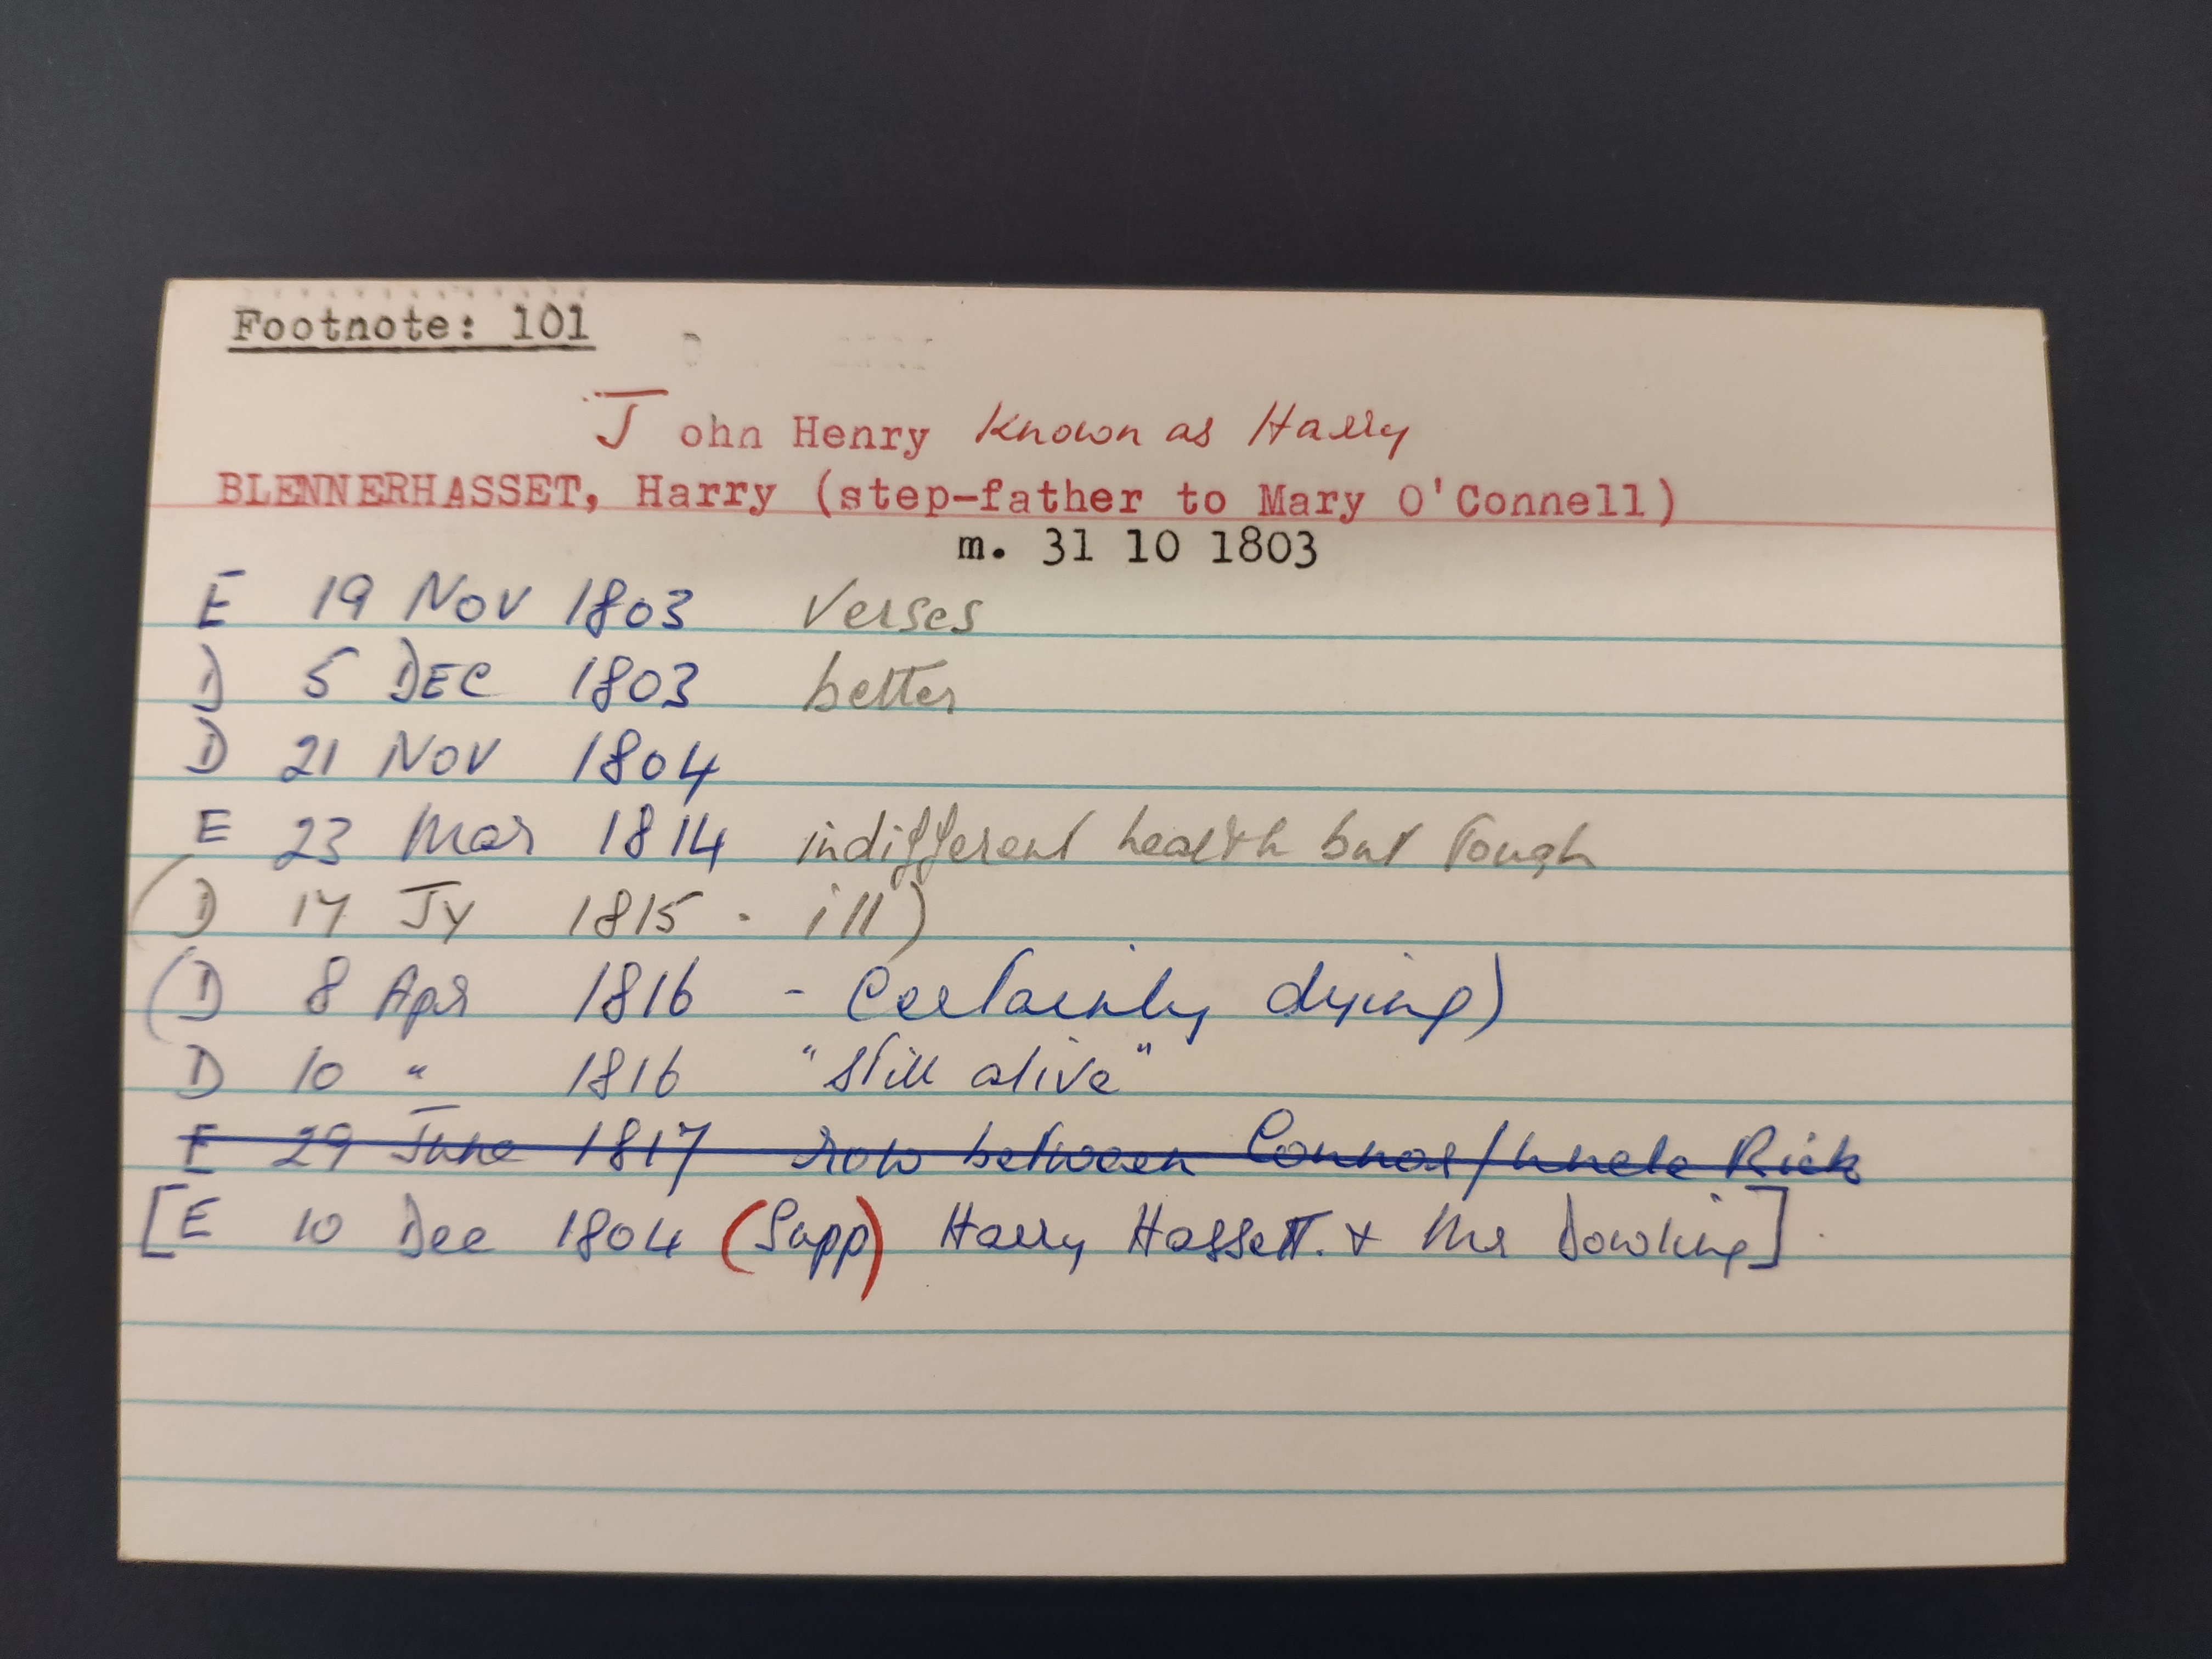 Footnote: 101
John Henry Known as Harry
BLENNERHASSET, Harry (step-father to Mary O'Connell)
m. 31 10 1803
E 19 NOV 1803 Verses
D 5 DEC 1803 better
D 21 NOV 1804
E 23 Mar 1814 indifferent health but tough
(D 17 Jy 1815 - ill)
(D 8 Apr 1816 - Certainly dying)
D 10 " 1816 "still alive"
E 29 June 1817 row between Connor/Uncle Rick
[E 10 Dec 1804 (Supp) Harry Hassett. + Mr Dowling].